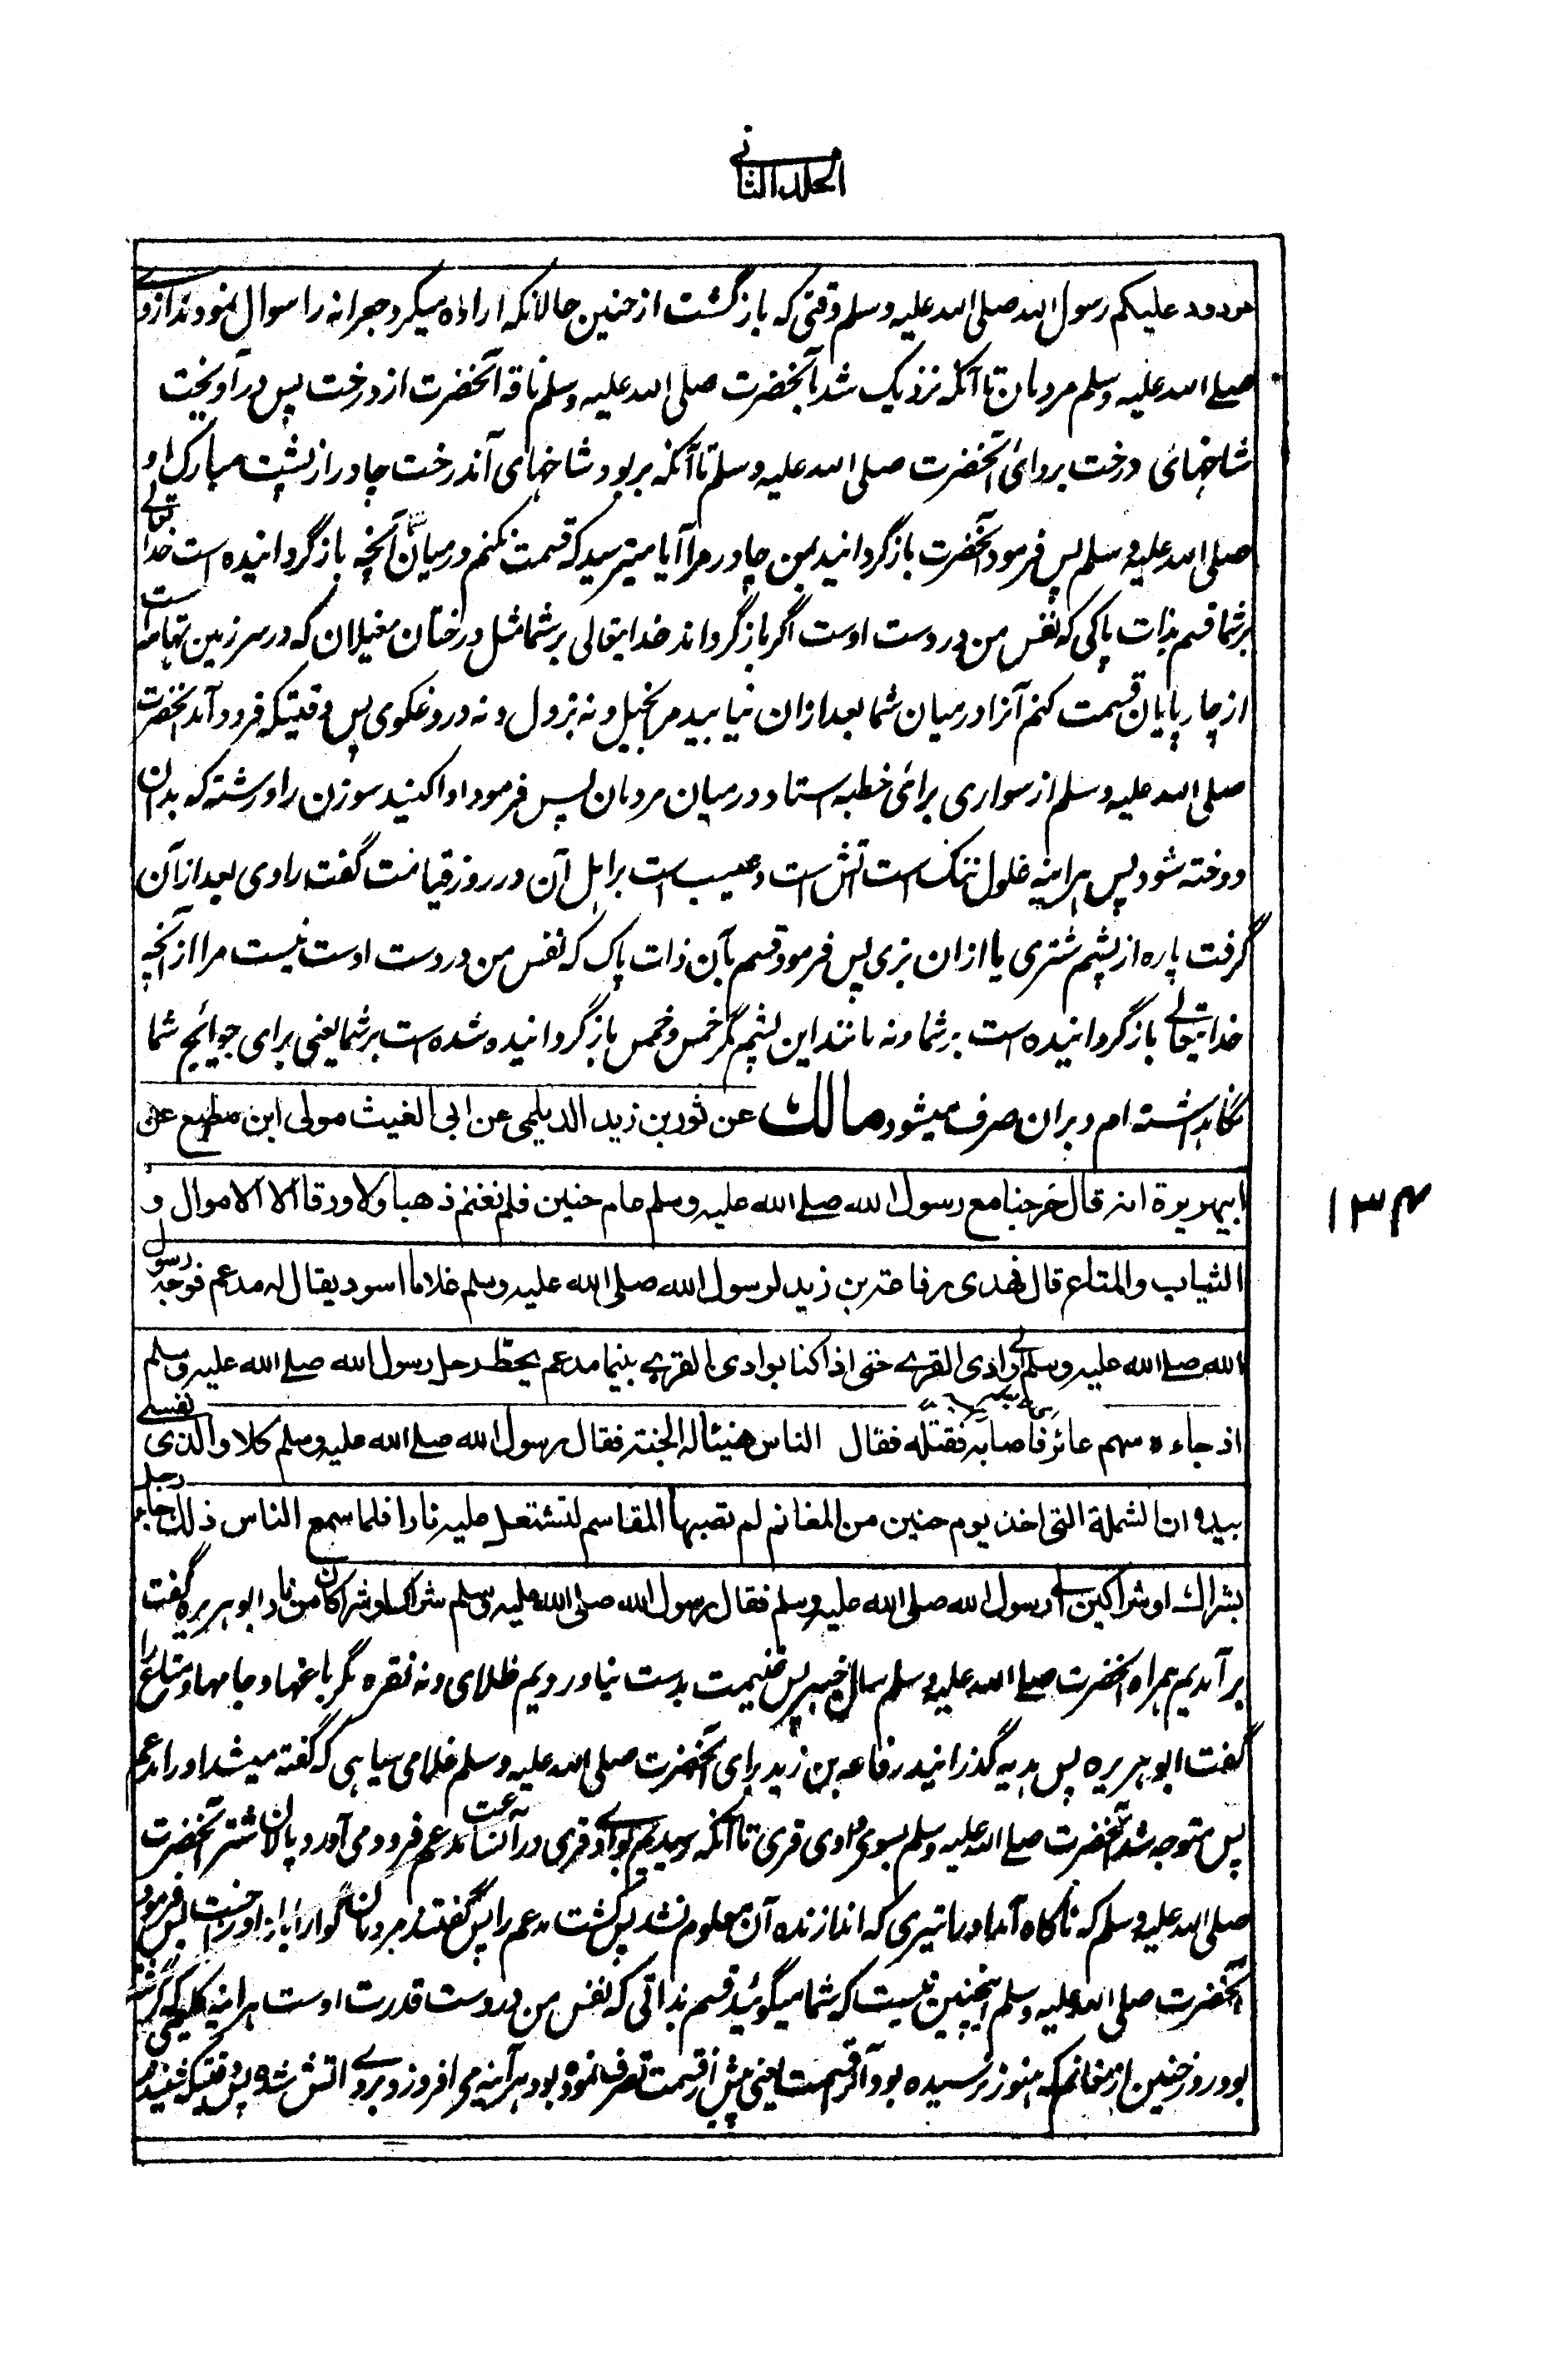 الجلد الثانی
مردود علیکم رسول الله صلی الله علیه وسلم وقتی که بازگشت از حنین حالانکه اراده میکرد جعرانه را سوال نمودند ازوے
صلے الله علیه وسلم مردمان تا آنکه نزدیک شد بآنحضرت صلی الله علیه وسلم ناقه آنحضرت از درخت پس درآویخت
شاخهائی درخت بردائ آنحضرت صلی الله علیه وسلم تا آنکه بربود شاخهای آندرخت چادر از پشت مبارک او
صلی الله علیه وسلم پس فرمود آنحضرت بازگردانید بمن چادر مرا آیا میترسید که قسمت نکنم درمیان شما آنچه بازگردانیده است خدا تعالے
برشما قسم بذات پاکی که نفس من در دست اوست اگر بازگرداند خدایتعالی برشما مثل درختان مغیلان که در سرزمین تهامه است
از چارپایان قسمت کنم آنرا درمیان شما بعد ازان نیابید مرا بخیل و نه بزول و نه دروغکوی پس وقتیکه فرود آمد آنحضرت
صلی الله علیه وسلم از سواری برائی خطبه استاد درمیان مردمان پس فرمود ادا کنید سوزن را و رشته که بدان
دوخته شود پس هراینه غلول ننگ است آتش است وعیب است بر اهل آن در روز قیامت گفت راوی بعد ازآن
گرفت پاره از پشم شتری یا ازان بزی پس فرمود قسم بآن ذات پاک که نفس من در دست اوست نیست مرا از آنچه
خدایتعالے بازگردانیده است برشما ونه مانند این پشم مگر خمس وخمس بازگردانیده شده است برشما یعنی برای حوائج شما
نگاهداشته ام و بران صرف میشود مالك عن ثور بن زيد الديلمى عن ابى الغيث مولى ابن مطيع عن
ابيهريرة انه قال خرجنا مع رسول الله صلے الله عليه وسلم عام حنين فلم نغنم ذهبا ولا ورقا الا الاموال و
الثياب والمتاع قال فهدى رفاعة بن زيد لرسول الله صلى الله عليه وسلم غلاما اسود يقال له مدعم فوجه رسول
الله صلے الله عليه وسلم الى وادى القرے حتى اذا كنا بوادى القرے بينما مدعم يحط رحل رسول الله صلے الله عليه وسلم
اذ جاءه سهم عائر فاصابه فقتله فقال الناس هنيئا له الجنة فقال رسول الله صلے الله عليه وسلم كلا والذى نفسے
بيده ان الشملة التى اخذ يوم حنين من المغانم لم تصبها المقاسم لتشتعل عليه نارا فلما سمع الناس ذلك جاء رجل
بشراك او شراكين الے رسول الله صلى الله عليه وسلم فقال رسول الله صلى الله عليه وسلم شراك او شراكان من نار ابو هریره گفت
برآمدیم همراه آنحضرت صلے الله علیه وسلم سال خیبر پس غنیمت بدست نیاوردیم طلای ونه نقره مگر باغها وجامها ومتاع را
گفت ابو هریره پس هدیه گذرانید رفاعه بن زید برای آنحضرت صلی الله علیه وسلم غلامی سیاهی که گفته میشد اورا مدعم
پس متوجه شد آنحضرت صلے الله علیه وسلم بسوی وادی قری تا آنکه رسیدیم بوادی قری درآنساعت مدعم فرود می آورد پالان شتر آنحضرت
صلی الله علیه وسلم که ناگاه آمد اورا تیری که اندازنده آن معلوم نشد پس کشت مدعم را پس گفتند مردمان گوارا باد اورا جنت پس فرمود
آنحضرت صلی الله علیه وسلم اینچنین نیست که شما میگوئید قسم بذاتی که نفس من در دست قدرت اوست هراینه گلیمی که گرفته
بود روز حنین از مغانم که هنوز نرسیده بود آنرا قسمت یعنی پیش از قسمت تصرف نموده بود هرآینه می افروزد بروے آتش شده پس وقتیکه شنیدند
۱۳۴